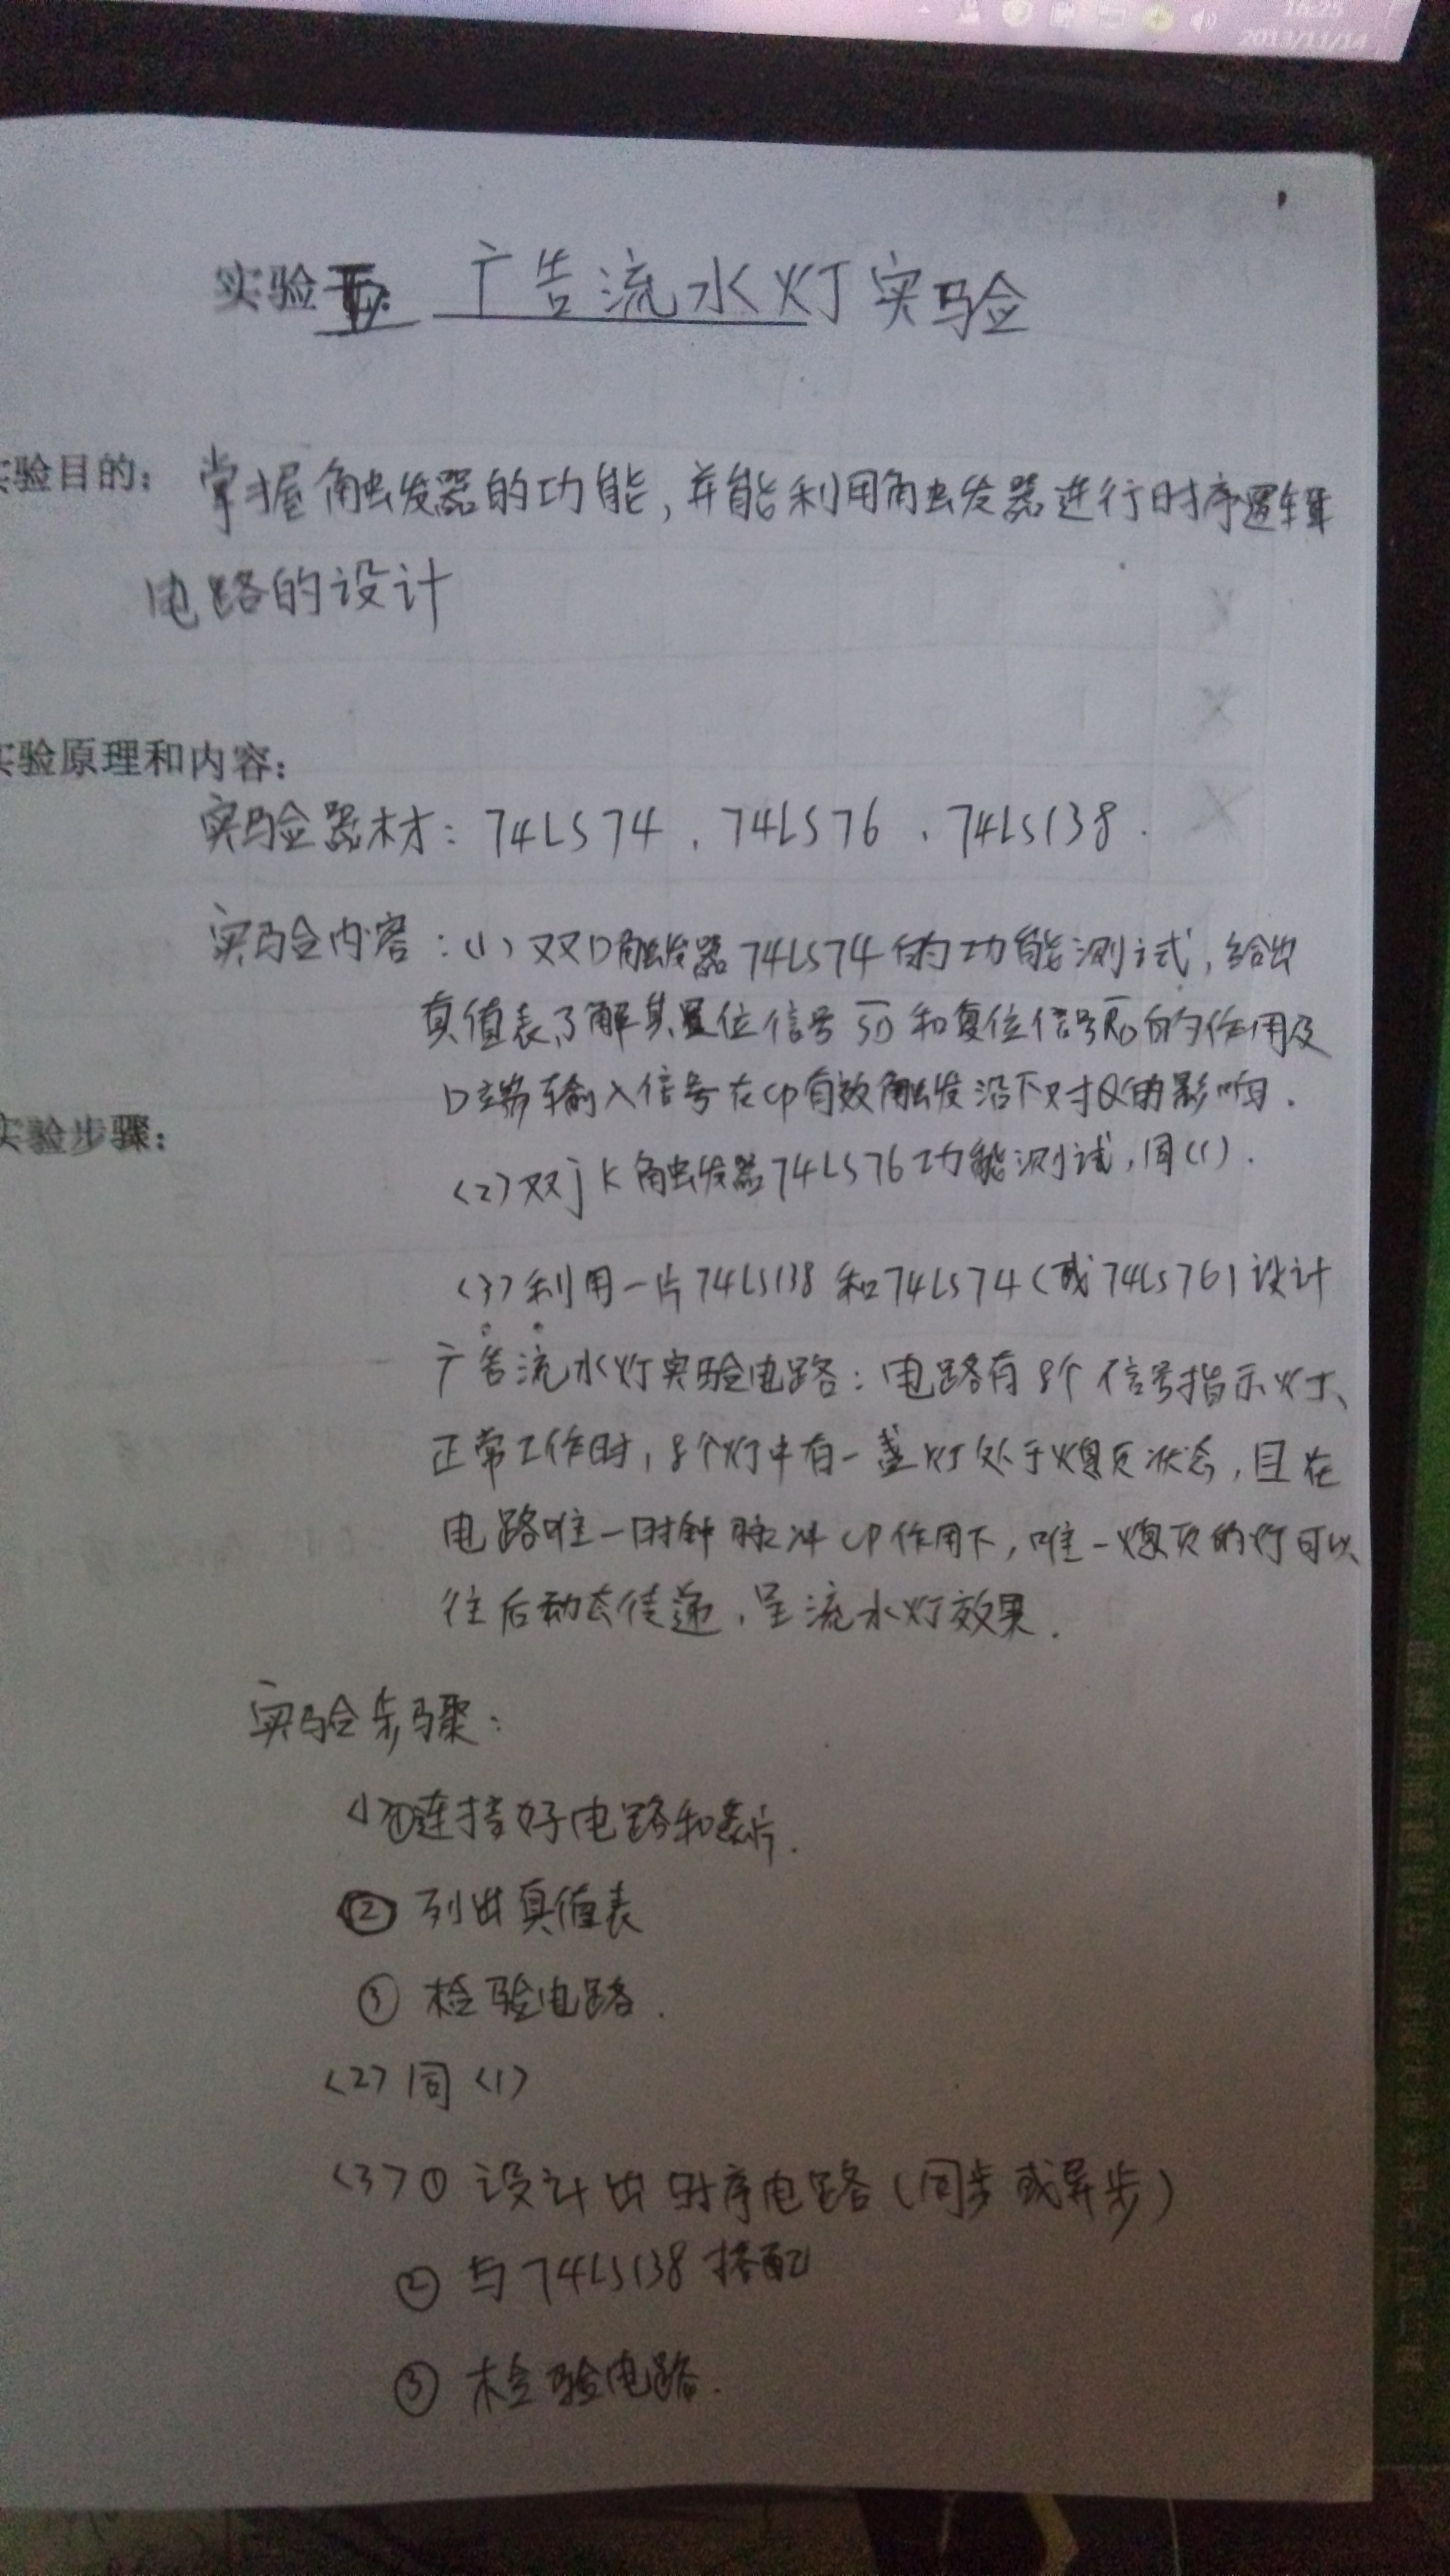 16:25
2013/11/14
实验五 广告流水灯实验
实验目的：掌握触发器的功能，并能利用触发器进行时序逻辑
电路的设计
实验原理和内容：
实验器材：74LS74、74LS76、74LS138.
实验内容：(1)双D触发器74LS74的功能测试，给出
真值表，了解其置位信号S̅D̅和复位信号R̅D̅的作用及
D端输入信号在CP有效触发沿下对Q的影响.
实验步骤：
(2)双jK触发器74LS76功能测试，同(1).
(3)利用一片74LS138和74LS74(或74LS76)设计
广告流水灯实验电路：电路有8个信号指示灯、
正常工作时，8个灯中有一盏灯处于熄灭状态，且在
电路唯一时钟脉冲CP作用下，唯一熄灭的灯可以
往后动态传递，呈流水灯效果.
实验步骤：
(1)①连接好电路和芯片.
② 列出真值表
③ 检验电路.
(2)同(1)
(3)① 设计出时序电路(同步或异步)
② 与74LS138搭配
③ 检验电路.